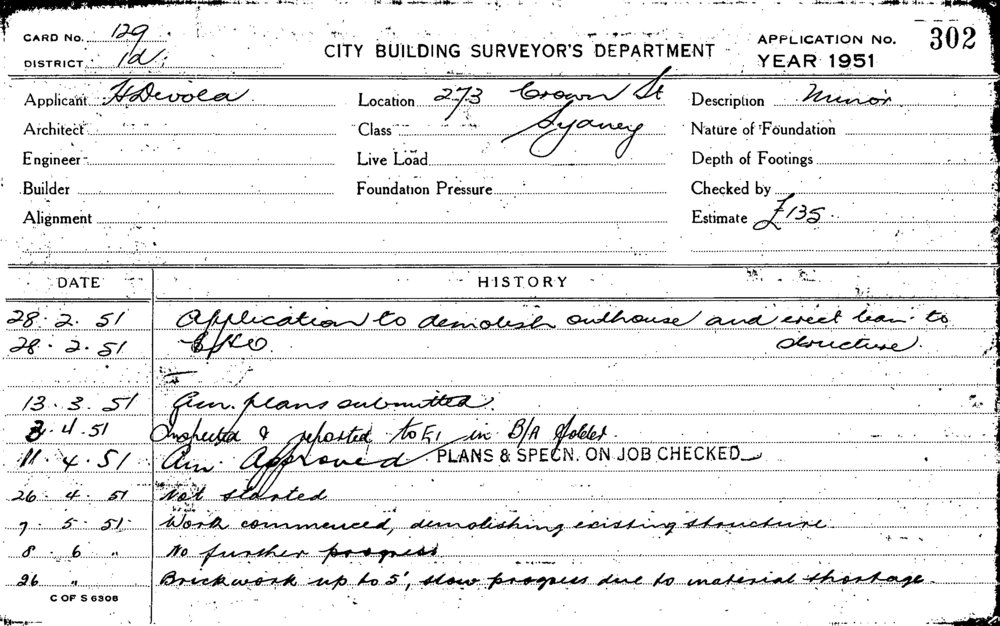 CARD No. 129
DISTRICT 1d.
CITY BUILDING SURVEYOR'S DEPARTMENT
APPLICATION No. 302
YEAR 1951
Applicant H Devola Location 273 Crown St Description Minor
Architect Class Sydney Nature of Foundation
Engineer Live Load Depth of Footings
Builder Foundation Pressure Checked by
Alignment Estimate £135
DATE HISTORY
28. 2. 51 Application to demolish outhouse and erect lean-to
28. 2. 51 structure.
13. 3. 51 Am. plans submitted.
3. 4. 51 Inspected & reported to E1 in B/A folder
11. 4. 51 Am. Approved PLANS & SPECN. ON JOB CHECKED
26. 4. 51 Not started
7. 5. 51. Work commenced, demolishing existing structure.
8. 6 " No further progress
26 " Brickwork up to 5', slow progress due to material shortage.
C OF S 6308